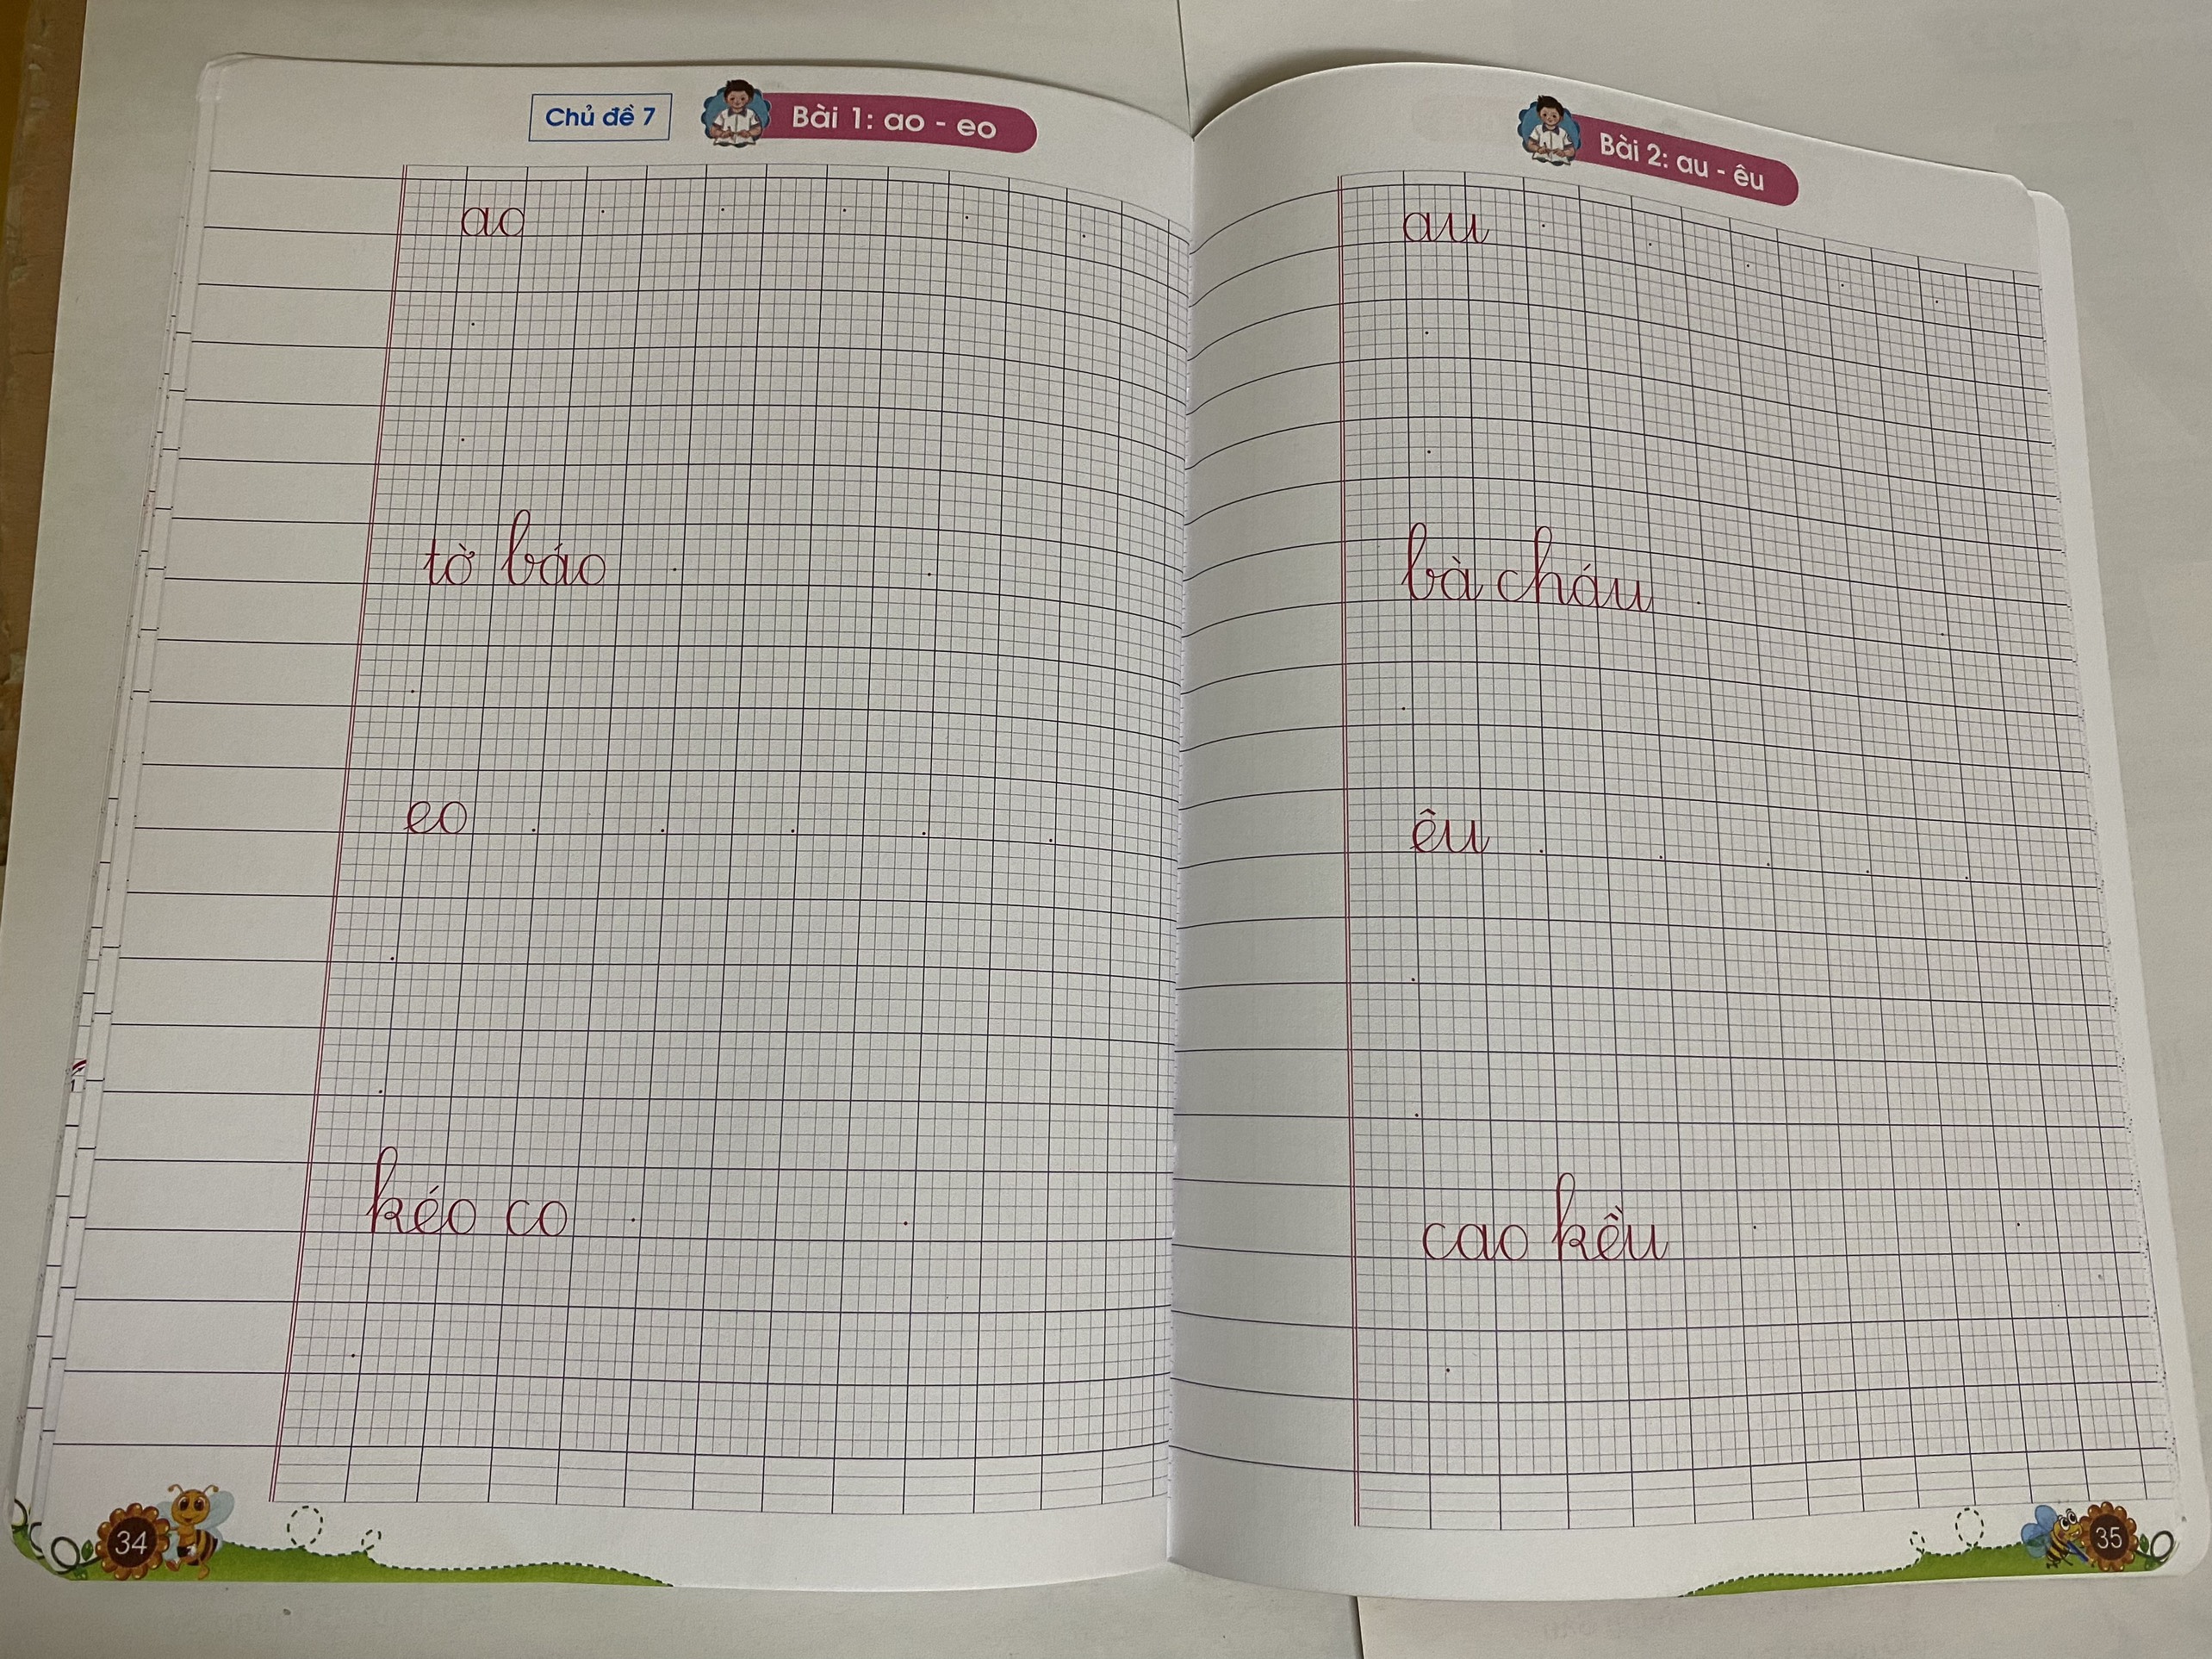 Chủ đề 7
Bài 1: ao - eo
ao
tờ báo
eo
kéo co
34
Bài 2: au - êu
au
bà cháu
êu
cao kều
35